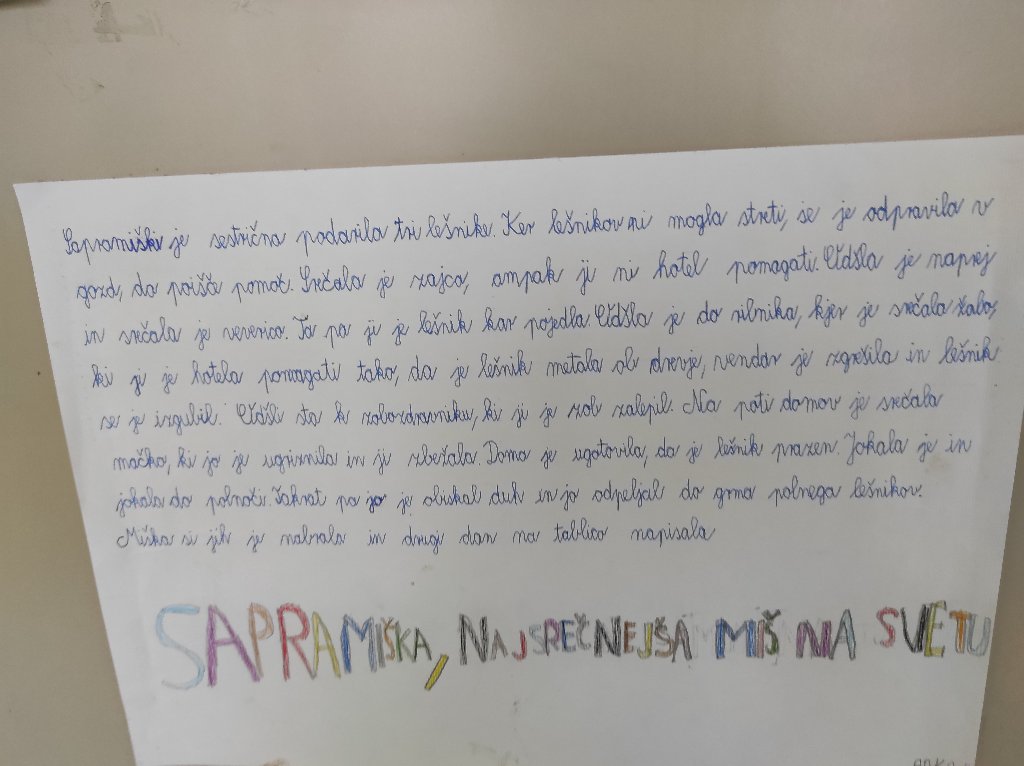 Sapramiški je sestrična podarila tri lešnike. Ker lešnikov ni mogla streti, se je odpravila v
gozd, da poišče pomoč. Srečala je zajca, ampak ji ni hotel pomagati. Odšla je naprej
in srečala je veverico. Ta pa ji je lešnik kar pojedla. Odšla je do ribnika, kjer je srečala žabo,
ki ji je hotela pomagati tako, da je lešnik metala ob drevje, vendar je zgrešila in lešnik
se je izgubil. Odšli sta k zobozdravniku, ki ji je zob zalepil. Na poti domov je srečala
mačko, ki jo je ugriznila in ji zbežala. Doma je ugotovila, da je lešnik prazen. Jokala je in
jokala do polnoči. Takrat pa jo je obiskal duh in jo odpeljal do grma polnega lešnikov.
Miška si jih je nabrala in drugi dan na tablico napisala
SAPRAMIŠKA, NAJSREČNEJŠA MIŠ NA SVETU